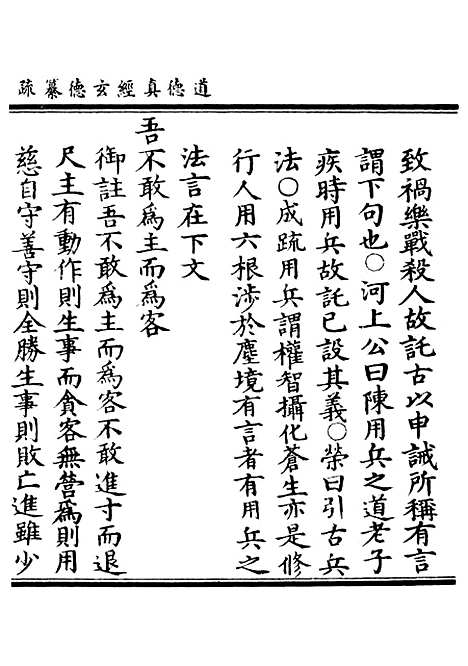 道德真經玄德纂疏
致禍樂戰殺人故託古以申誡所稱有言
謂下句也〇河上公曰陳用兵之道老子
疾時用兵故託已設其義〇榮曰引古兵
法〇成疏用兵謂權智攝化蒼生亦是修
行人用六根涉於塵境有言者有用兵之
法言在下文
吾不敢為主而為客
御註吾不敢為主而為客不敢進寸而退
尺主有動作則生事而貪客無營為則用
慈自守善守則全勝生事則敗亡進雖少